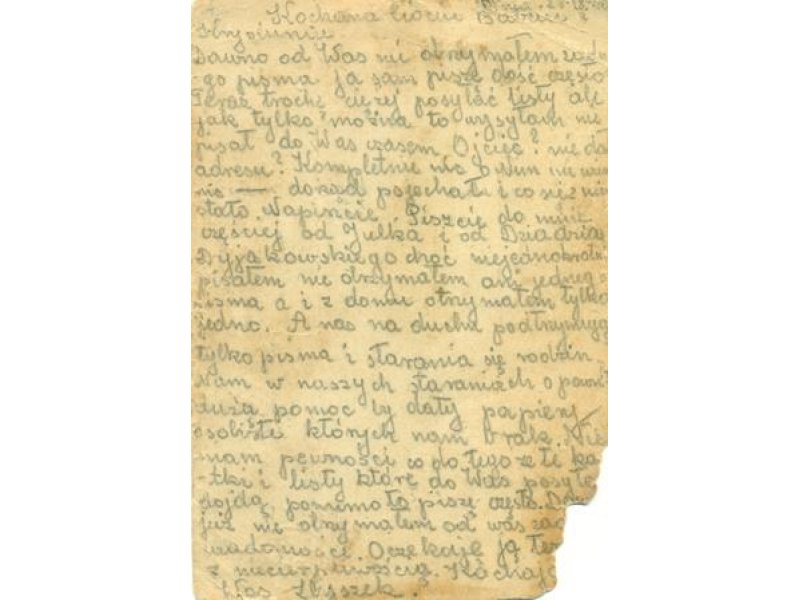 Kochana Ciociu Babciu i
Krysiuniu
Dawno od Was nie otrzymałem żad-
go pisma ja sam piszę dość często
Teraz trochę ciężej posyłać listy ale
jak tylko można to wysyłam nie
pisał do Was czasem Ojciec? nie dał
adresu? Kompletnie nic o Nim nie wiem
nic — dokąd pojechał i co się z nim
stało. Napiszcie. Piszcie do mnie
częściej od Julka i od Dziadzia
Dyjakowskiego choć niejednokrotnie
pisałem nie otrzymałem ani jednego
pisma a i z domu otrzymałem tylko
jedno. A nas na duchu podtrzymują
tylko pisma i starania się rodzin.
Nam w naszych staraniach o
dużą pomoc by dały papiery
osobiste których nam brak. Nie
mam pewności co do tego że te ka-
-tki i listy które do Was posyła
dojdą, pomimo to piszę często.
już nie otrzymałem od was żad
wiadomości. Oczekuję ja
z niecierpliwością. Kochają
Was Zbyszek.